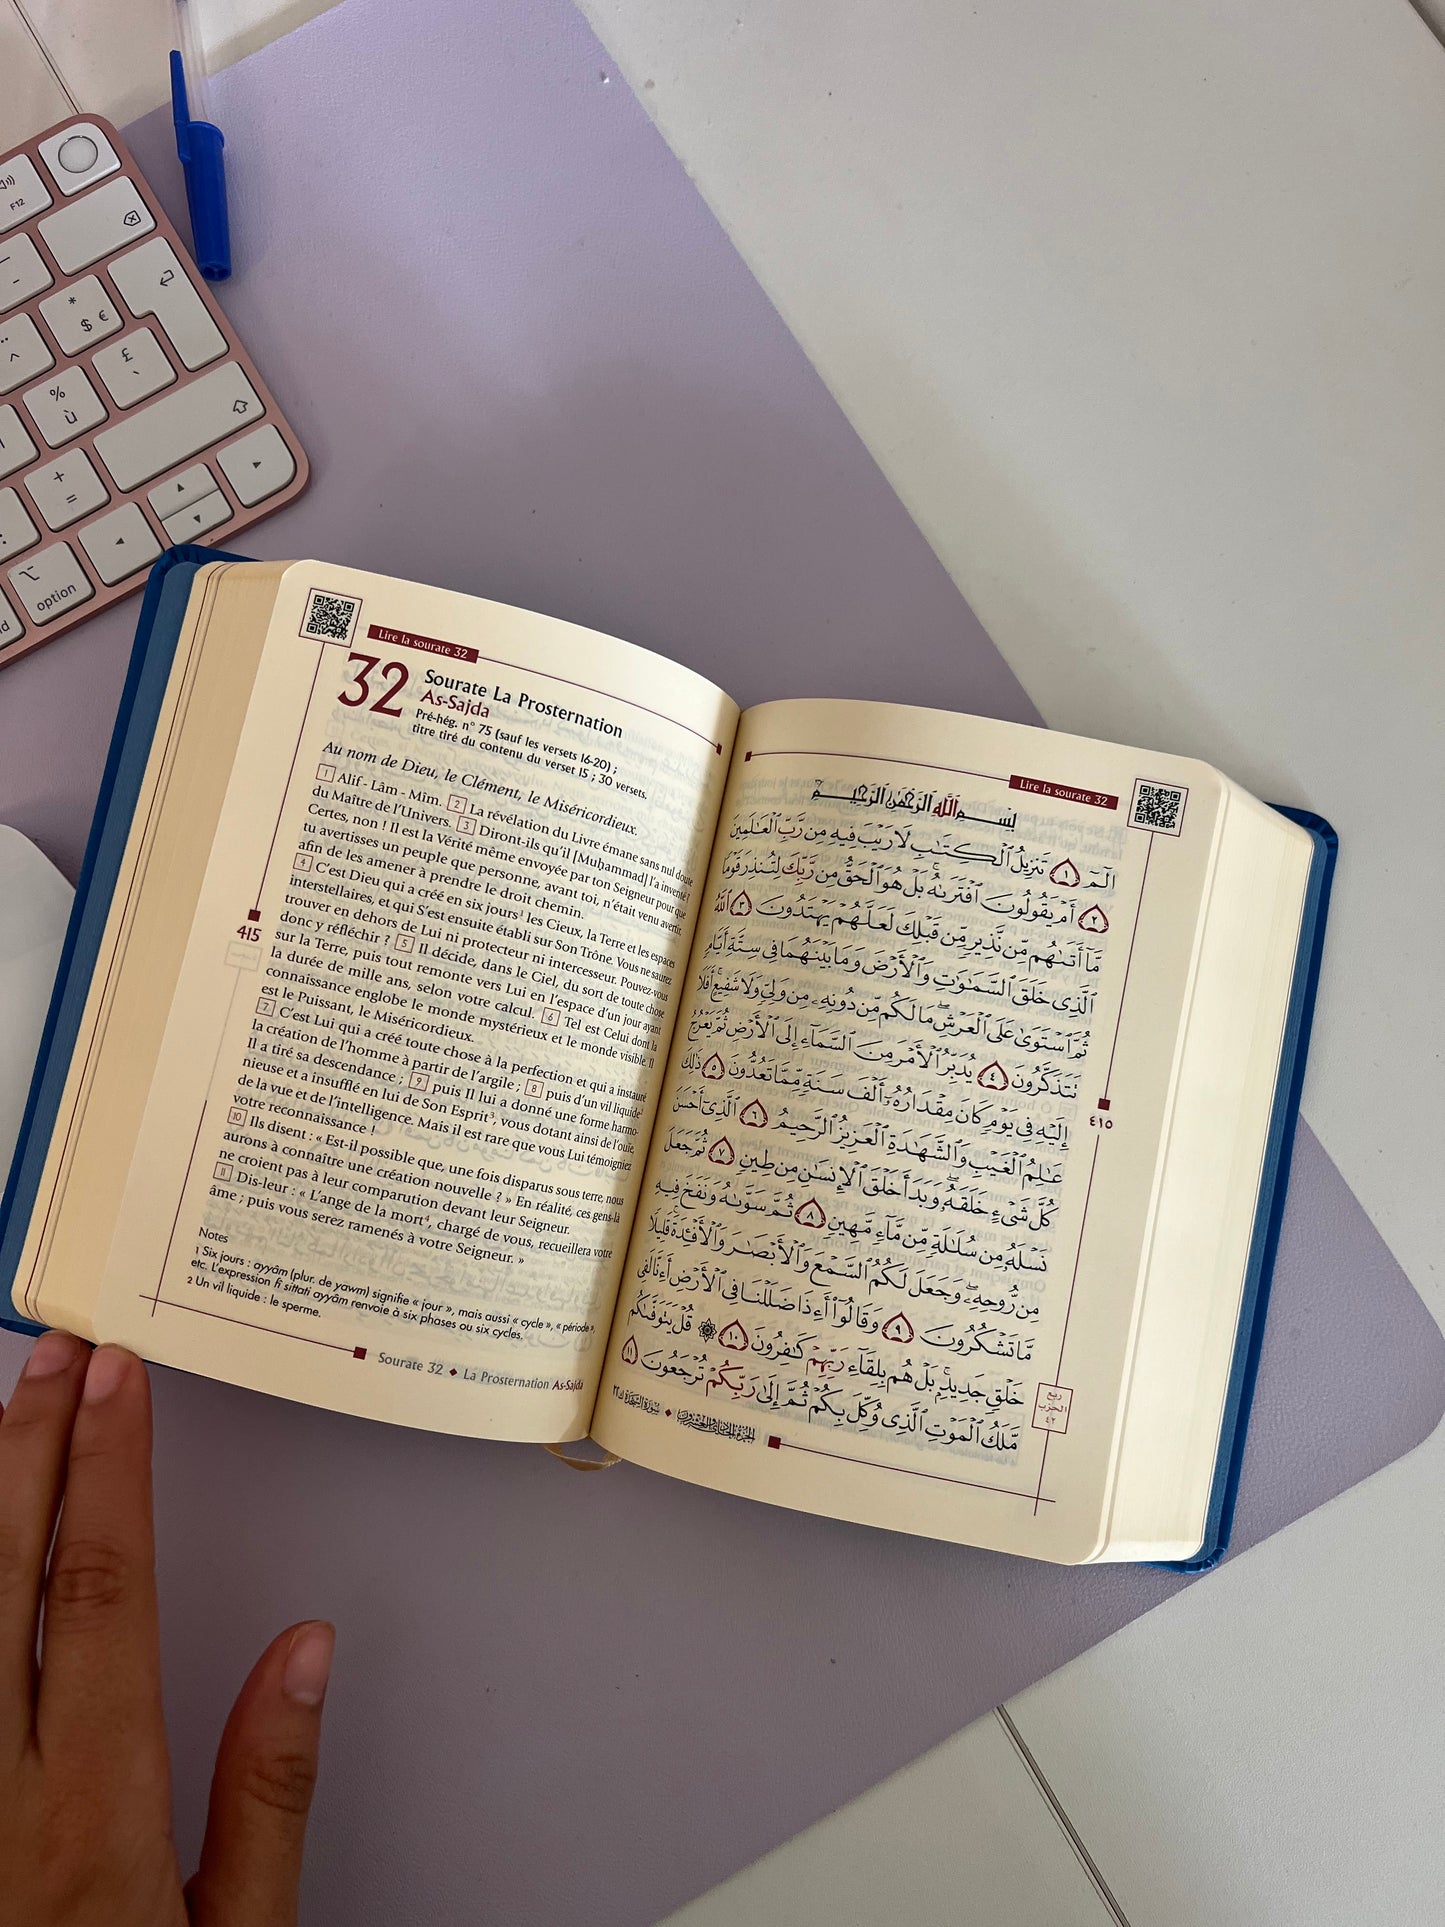 F12
* $ €
^
£ `
% ù
+ =
option
Lire la sourate 32
32
Sourate La Prosternation
As-Sajda
Pré-hég. n° 75 (sauf les versets 16-20) ;
titre tiré du contenu du verset 15 ; 30 versets.
Au nom de Dieu, le Clément, le Miséricordieux.
1 Alif - Lâm - Mîm. 2 La révélation du Livre émane sans nul doute
du Maître de l'Univers. 3 Diront-ils qu'il [Muḥammad] l'a inventé ?
Certes, non ! Il est la Vérité même envoyée par ton Seigneur pour que
tu avertisses un peuple que personne, avant toi, n'était venu avertir,
afin de les amener à prendre le droit chemin.
4 C'est Dieu qui a créé en six jours¹ les Cieux, la Terre et les espaces
interstellaires, et qui S'est ensuite établi sur Son Trône. Vous ne saurez
trouver en dehors de Lui ni protecteur ni intercesseur. Pouvez-vous
donc y réfléchir ? 5 Il décide, dans le Ciel, du sort de toute chose
sur la Terre, puis tout remonte vers Lui en l'espace d'un jour ayant
la durée de mille ans, selon votre calcul. 6 Tel est Celui dont la
connaissance englobe le monde mystérieux et le monde visible. Il
est le Puissant, le Miséricordieux.
7 C'est Lui qui a créé toute chose à la perfection et qui a instauré
la création de l'homme à partir de l'argile ; 8 puis d'un vil liquide²
Il a tiré sa descendance ; 9 puis Il lui a donné une forme harmo-
nieuse et a insufflé en lui de Son Esprit³, vous dotant ainsi de l'ouïe,
de la vue et de l'intelligence. Mais il est rare que vous Lui témoigniez
votre reconnaissance !
10 Ils disent : « Est-il possible que, une fois disparus sous terre, nous
aurons à connaître une création nouvelle ? » En réalité, ces gens-là
ne croient pas à leur comparution devant leur Seigneur.
11 Dis-leur : « L'ange de la mort⁴, chargé de vous, recueillera votre
âme ; puis vous serez ramenés à votre Seigneur. »
Notes
1 Six jours : ayyâm (plur. de yawm) signifie « jour », mais aussi « cycle », « période »,
etc. L'expression fî sittati ayyâm renvoie à six phases ou six cycles.
2 Un vil liquide : le sperme.
415
Sourate 32 ◆ La Prosternation As-Sajda
Lire la sourate 32
بِسْمِ ٱللَّهِ ٱلرَّحْمَٰنِ ٱلرَّحِيمِ
الٓمٓ ١ تَنزِيلُ ٱلْكِتَٰبِ لَا رَيْبَ فِيهِ مِن رَّبِّ ٱلْعَٰلَمِينَ
٢ أَمْ يَقُولُونَ ٱفْتَرَىٰهُ ۚ بَلْ هُوَ ٱلْحَقُّ مِن رَّبِّكَ لِتُنذِرَ قَوْمًا
مَّآ أَتَىٰهُم مِّن نَّذِيرٍ مِّن قَبْلِكَ لَعَلَّهُمْ يَهْتَدُونَ ٣ ٱللَّهُ
ٱلَّذِى خَلَقَ ٱلسَّمَٰوَٰتِ وَٱلْأَرْضَ وَمَا بَيْنَهُمَا فِى سِتَّةِ أَيَّامٍ
ثُمَّ ٱسْتَوَىٰ عَلَى ٱلْعَرْشِ ۖ مَا لَكُم مِّن دُونِهِۦ مِن وَلِىٍّ وَلَا شَفِيعٍ ۚ أَفَلَا
تَتَذَكَّرُونَ ٤ يُدَبِّرُ ٱلْأَمْرَ مِنَ ٱلسَّمَآءِ إِلَى ٱلْأَرْضِ ثُمَّ يَعْرُجُ
إِلَيْهِ فِى يَوْمٍ كَانَ مِقْدَارُهُۥٓ أَلْفَ سَنَةٍ مِّمَّا تَعُدُّونَ ٥ ذَٰلِكَ
عَٰلِمُ ٱلْغَيْبِ وَٱلشَّهَٰدَةِ ٱلْعَزِيزُ ٱلرَّحِيمُ ٦ ٱلَّذِىٓ أَحْسَنَ
كُلَّ شَىْءٍ خَلَقَهُۥ ۖ وَبَدَأَ خَلْقَ ٱلْإِنسَٰنِ مِن طِينٍ ٧ ثُمَّ جَعَلَ
نَسْلَهُۥ مِن سُلَٰلَةٍ مِّن مَّآءٍ مَّهِينٍ ٨ ثُمَّ سَوَّىٰهُ وَنَفَخَ فِيهِ
مِن رُّوحِهِۦ ۖ وَجَعَلَ لَكُمُ ٱلسَّمْعَ وَٱلْأَبْصَٰرَ وَٱلْأَفْـِٔدَةَ ۚ قَلِيلًا
مَّا تَشْكُرُونَ ٩ وَقَالُوٓا۟ أَءِذَا ضَلَلْنَا فِى ٱلْأَرْضِ أَءِنَّا لَفِى
خَلْقٍ جَدِيدٍۭ ۚ بَلْ هُم بِلِقَآءِ رَبِّهِمْ كَٰفِرُونَ ١٠ ۞ قُلْ يَتَوَفَّىٰكُم
مَّلَكُ ٱلْمَوْتِ ٱلَّذِى وُكِّلَ بِكُمْ ثُمَّ إِلَىٰ رَبِّكُمْ تُرْجَعُونَ ١١
٤١٥
ربع
الحزب
٤٢
الجزء الحادي والعشرون ◆ سورة السجدة